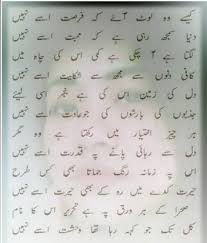 کیسے وہ لوٹ آئے کہ فرصت اسے نہیں
دنیا سمجھ رہی ہے کہ محبت اسے نہیں
لگتا ہے آ چکی ہے کمی اس کی چاہ میں
کافی دنوں سے مجھ سے شکایت اسے نہیں
دل کی زمین اس کی ہے بنجر اسی لیئے
جذبوں کی بارشوں کی جو عادت اسے نہیں
ہر چیز اختیار میں رکھتا ہے وہ مگر
دل سے رہائی پانے پہ قدرت اسے نہیں
اس پہ زمانہ رنگ جماتا بھی کس طرح
حیرت کدے میں رہ کے بھی حیرت اسے نہیں
صحرا کے ہر ورق پہ ہے تحریر اس کا نام
کل تک جو کہہ رہا تھا وحشت اسے نہیں